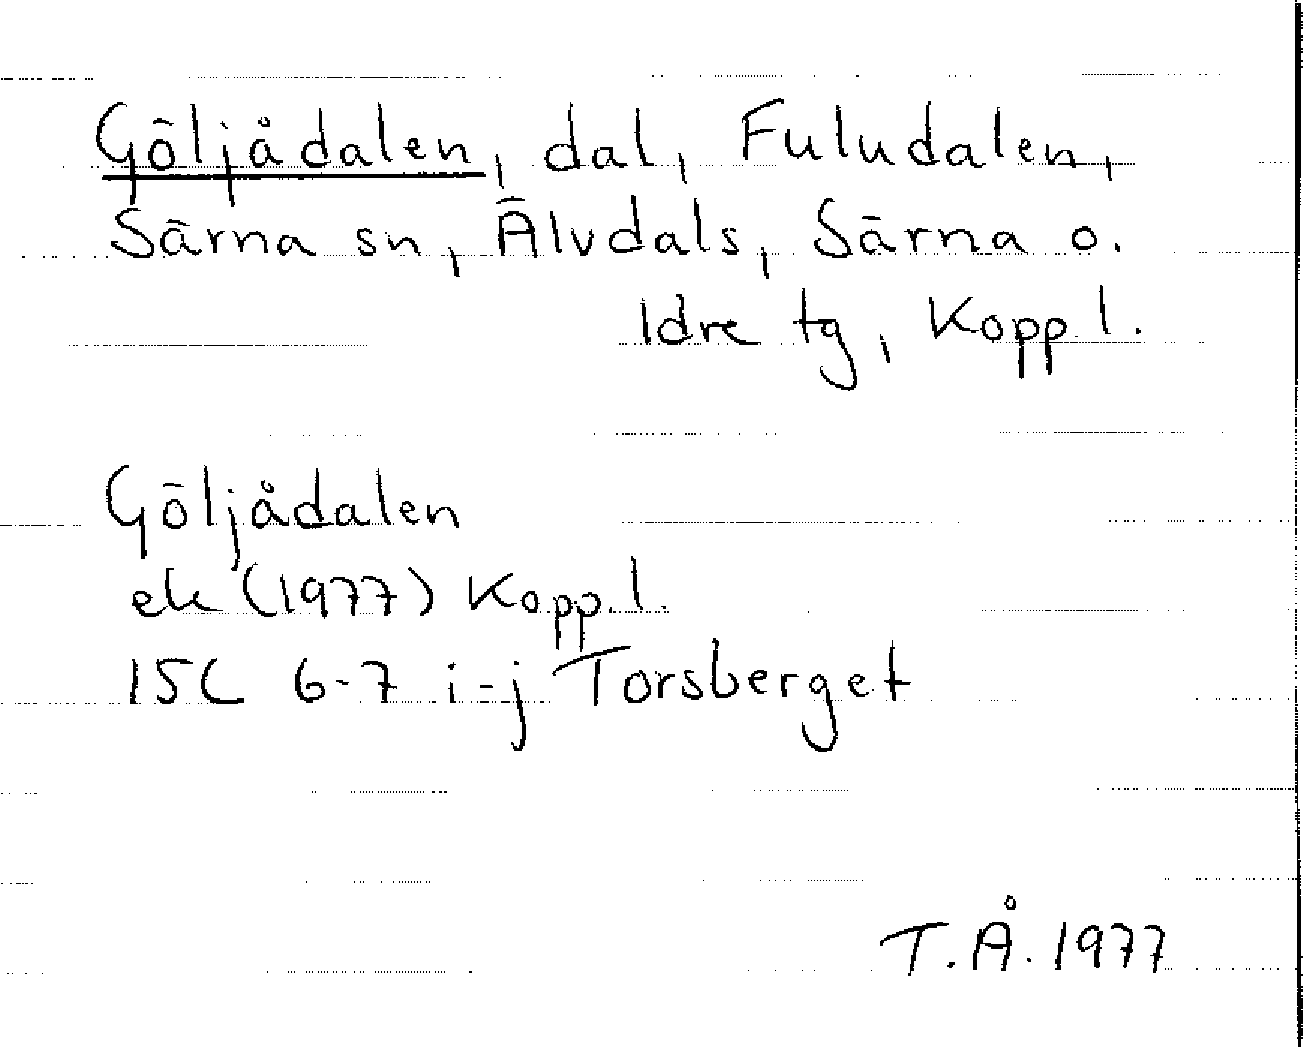 Göljådalen, dal, Fuludalen,
Särna sn, Älvdals, Särna o.
Idre tg, Kopp.l.
Göljådalen
ek (1977) Kopp.l.
15C 6-7 i-j Torsberget
T.Å. 1977